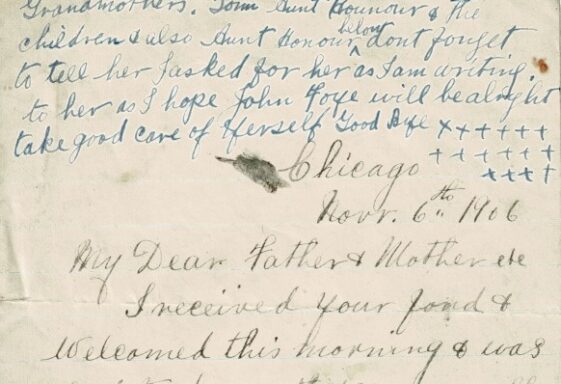 Grandmothers. Tom Aunt Hounour & the
children & also Aunt Honour below dont forget
to tell her I asked for her as I am writing.
to her as I hope John Foye will be alright
take good care of Herself Good Bye ××××××
××××××
××××
Chicago
Novr. 6th 1906
My Dear Father & Mother etc
I received your fond &
Welcomed this morning & was